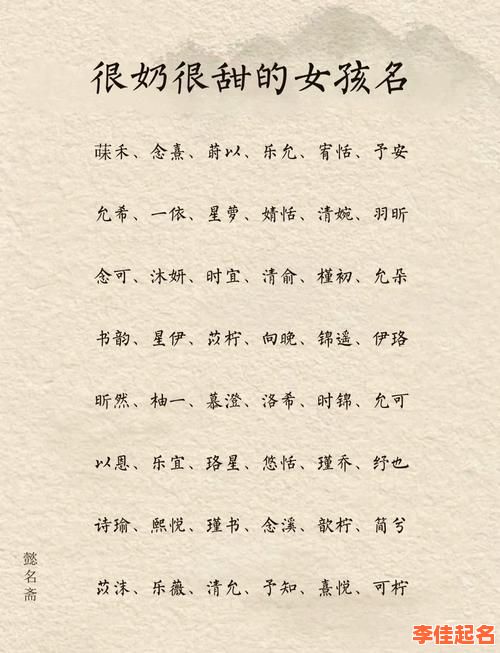 很奶很甜的女孩名
菋禾、念熹、莳以、乐允、宥恬、予安
允希、一依、星萝、婧恬、清婉、羽昕
念可、沐妍、时宜、清俞、槿初、允朵
书韵、星伊、苡柠、向晚、锦遥、伊珞
昕然、柚一、慕澄、洛希、时锦、允可
以恩、乐宜、珞星、悠恬、瑾乔、纾也
诗瑜、熙悦、瑾书、念溪、歆柠、简兮
苡沫、乐薇、清允、予知、熹悦、可柠
懿名斋
李佳起名